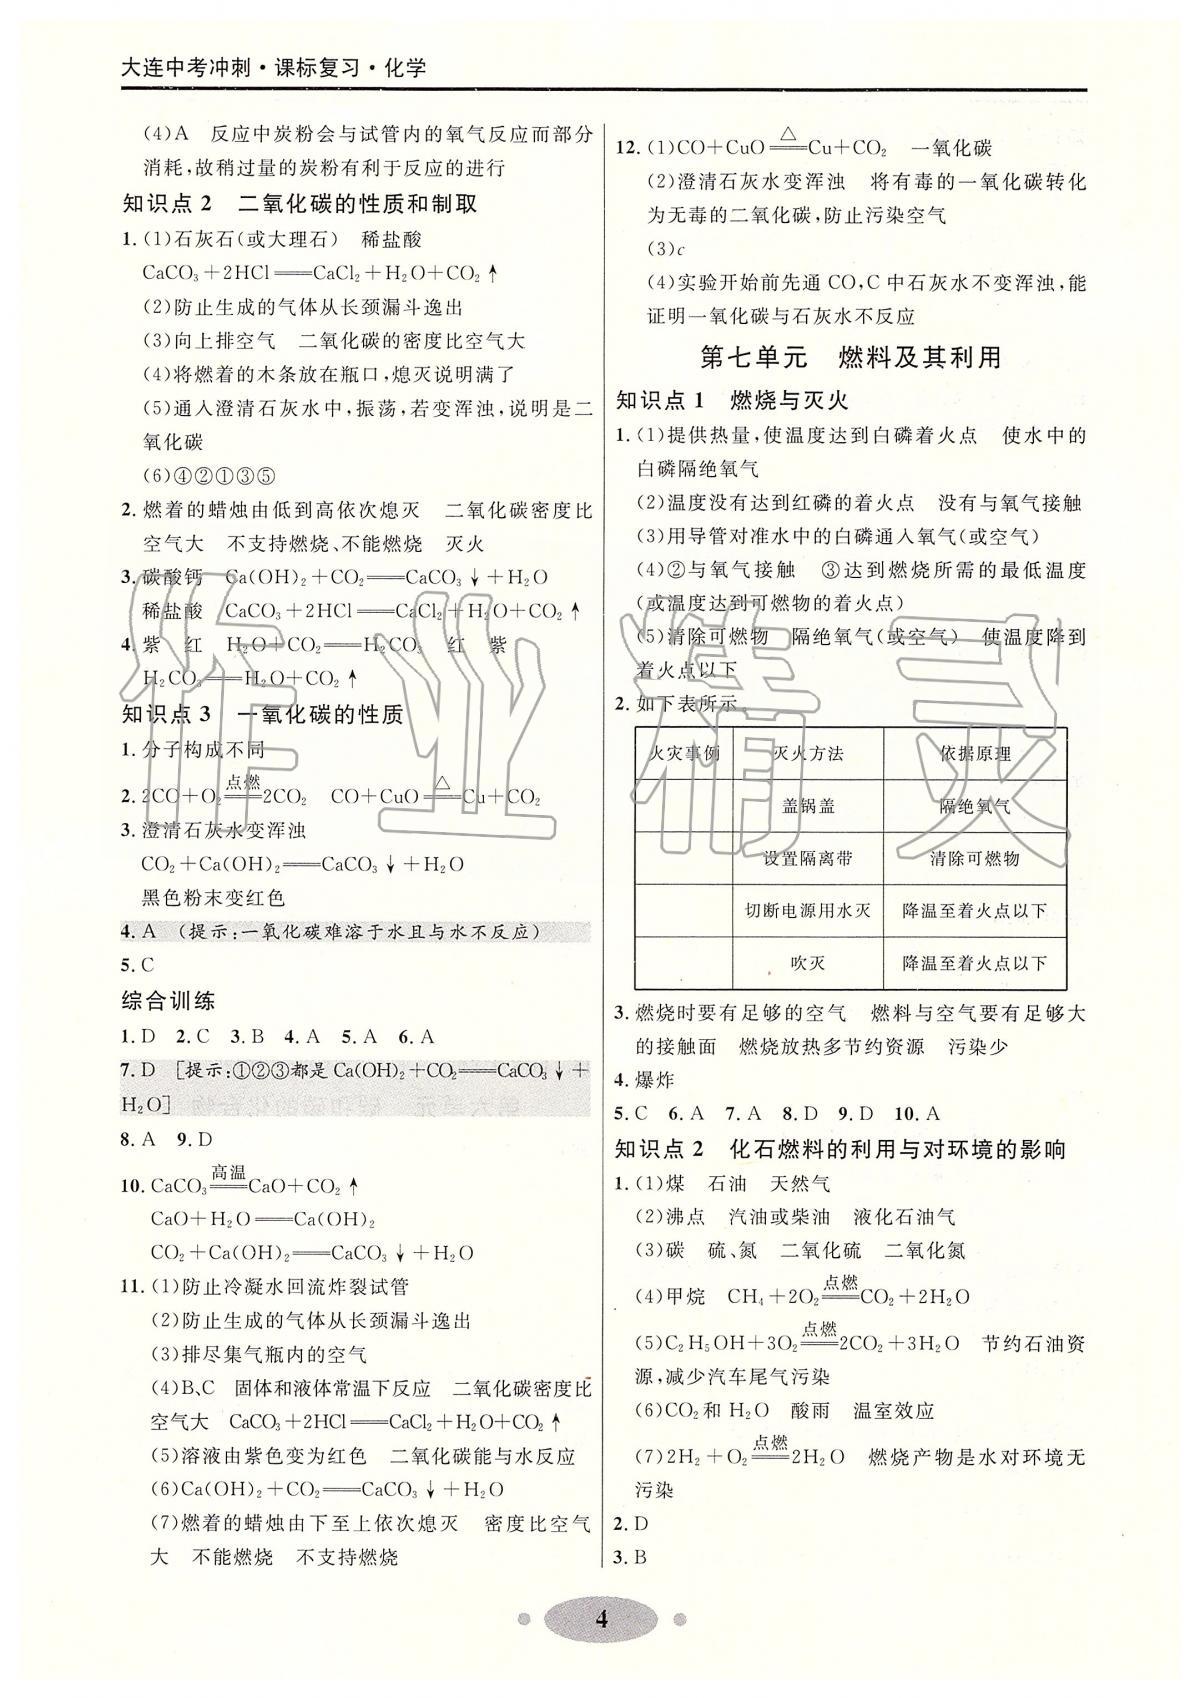 大连中考冲刺·课标复习·化学
(4)A 反应中炭粉会与试管内的氧气反应而部分
消耗,故稍过量的炭粉有利于反应的进行
知识点2 二氧化碳的性质和制取
1.(1)石灰石(或大理石) 稀盐酸
CaCO₃+2HCl══CaCl₂+H₂O+CO₂↑
(2)防止生成的气体从长颈漏斗逸出
(3)向上排空气 二氧化碳的密度比空气大
(4)将燃着的木条放在瓶口,熄灭说明满了
(5)通入澄清石灰水中,振荡,若变浑浊,说明是二
氧化碳
(6)④②①③⑤
2.燃着的蜡烛由低到高依次熄灭 二氧化碳密度比
空气大 不支持燃烧、不能燃烧 灭火
3.碳酸钙 Ca(OH)₂+CO₂══CaCO₃↓+H₂O
稀盐酸 CaCO₃+2HCl══CaCl₂+H₂O+CO₂↑
4.紫 红 H₂O+CO₂══H₂CO₃ 红 紫
H₂CO₃══H₂O+CO₂↑
知识点3 一氧化碳的性质
1.分子构成不同
2.2CO+O₂══点燃2CO₂ CO+CuO══△Cu+CO₂
3.澄清石灰水变浑浊
CO₂+Ca(OH)₂══CaCO₃↓+H₂O
黑色粉末变红色
4.A (提示:一氧化碳难溶于水且与水不反应)
5.C
综合训练
1.D 2.C 3.B 4.A 5.A 6.A
7.D [提示:①②③都是Ca(OH)₂+CO₂══CaCO₃↓+
H₂O]
8.A 9.D
10.CaCO₃══高温CaO+CO₂↑
CaO+H₂O══Ca(OH)₂
CO₂+Ca(OH)₂══CaCO₃↓+H₂O
11.(1)防止冷凝水回流炸裂试管
(2)防止生成的气体从长颈漏斗逸出
(3)排尽集气瓶内的空气
(4)B、C 固体和液体常温下反应 二氧化碳密度比
空气大 CaCO₃+2HCl══CaCl₂+H₂O+CO₂↑
(5)溶液由紫色变为红色 二氧化碳能与水反应
(6)Ca(OH)₂+CO₂══CaCO₃↓+H₂O
(7)燃着的蜡烛由下至上依次熄灭 密度比空气
大 不能燃烧 不支持燃烧
12.(1)CO+CuO══△Cu+CO₂ 一氧化碳
(2)澄清石灰水变浑浊 将有毒的一氧化碳转化
为无毒的二氧化碳,防止污染空气
(3)c
(4)实验开始前先通CO,C中石灰水不变浑浊,能
证明一氧化碳与石灰水不反应
第七单元 燃料及其利用
知识点1 燃烧与灭火
1.(1)提供热量,使温度达到白磷着火点 使水中的
白磷隔绝氧气
(2)温度没有达到红磷的着火点 没有与氧气接触
(3)用导管对准水中的白磷通入氧气(或空气)
(4)②与氧气接触 ③达到燃烧所需的最低温度
(或温度达到可燃物的着火点)
(5)清除可燃物 隔绝氧气(或空气) 使温度降到
着火点以下
2.如下表所示。
火灾事例 灭火方法 依据原理
盖锅盖 隔绝氧气
设置隔离带 清除可燃物
切断电源用水灭 降温至着火点以下
吹灭 降温至着火点以下
3.燃烧时要有足够的空气 燃料与空气要有足够大
的接触面 燃烧放热多节约资源 污染少
4.爆炸
5.C 6.A 7.A 8.D 9.D 10.A
知识点2 化石燃料的利用与对环境的影响
1.(1)煤 石油 天然气
(2)沸点 汽油或柴油 液化石油气
(3)碳 硫、氮 二氧化硫 二氧化氮
(4)甲烷 CH₄+2O₂══点燃CO₂+2H₂O
(5)C₂H₅OH+3O₂══点燃2CO₂+3H₂O 节约石油资
源,减少汽车尾气污染
(6)CO₂和H₂O 酸雨 温室效应
(7)2H₂+O₂══点燃2H₂O 燃烧产物是水对环境无
污染
2.D
3.B
作业精灵
4